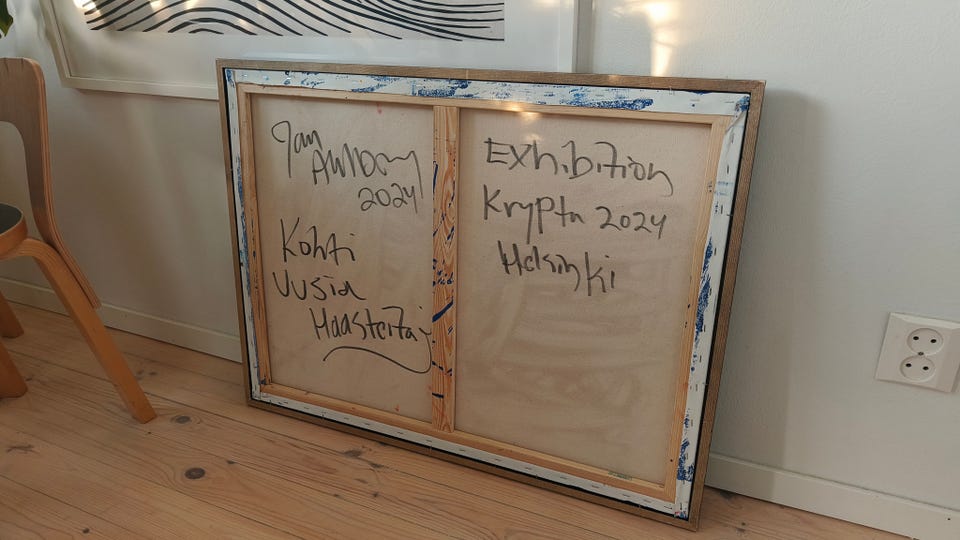 Jan
2024
Kohti
Uusia
Haasteita
Exhibition
Krypta 2024
Helsinki